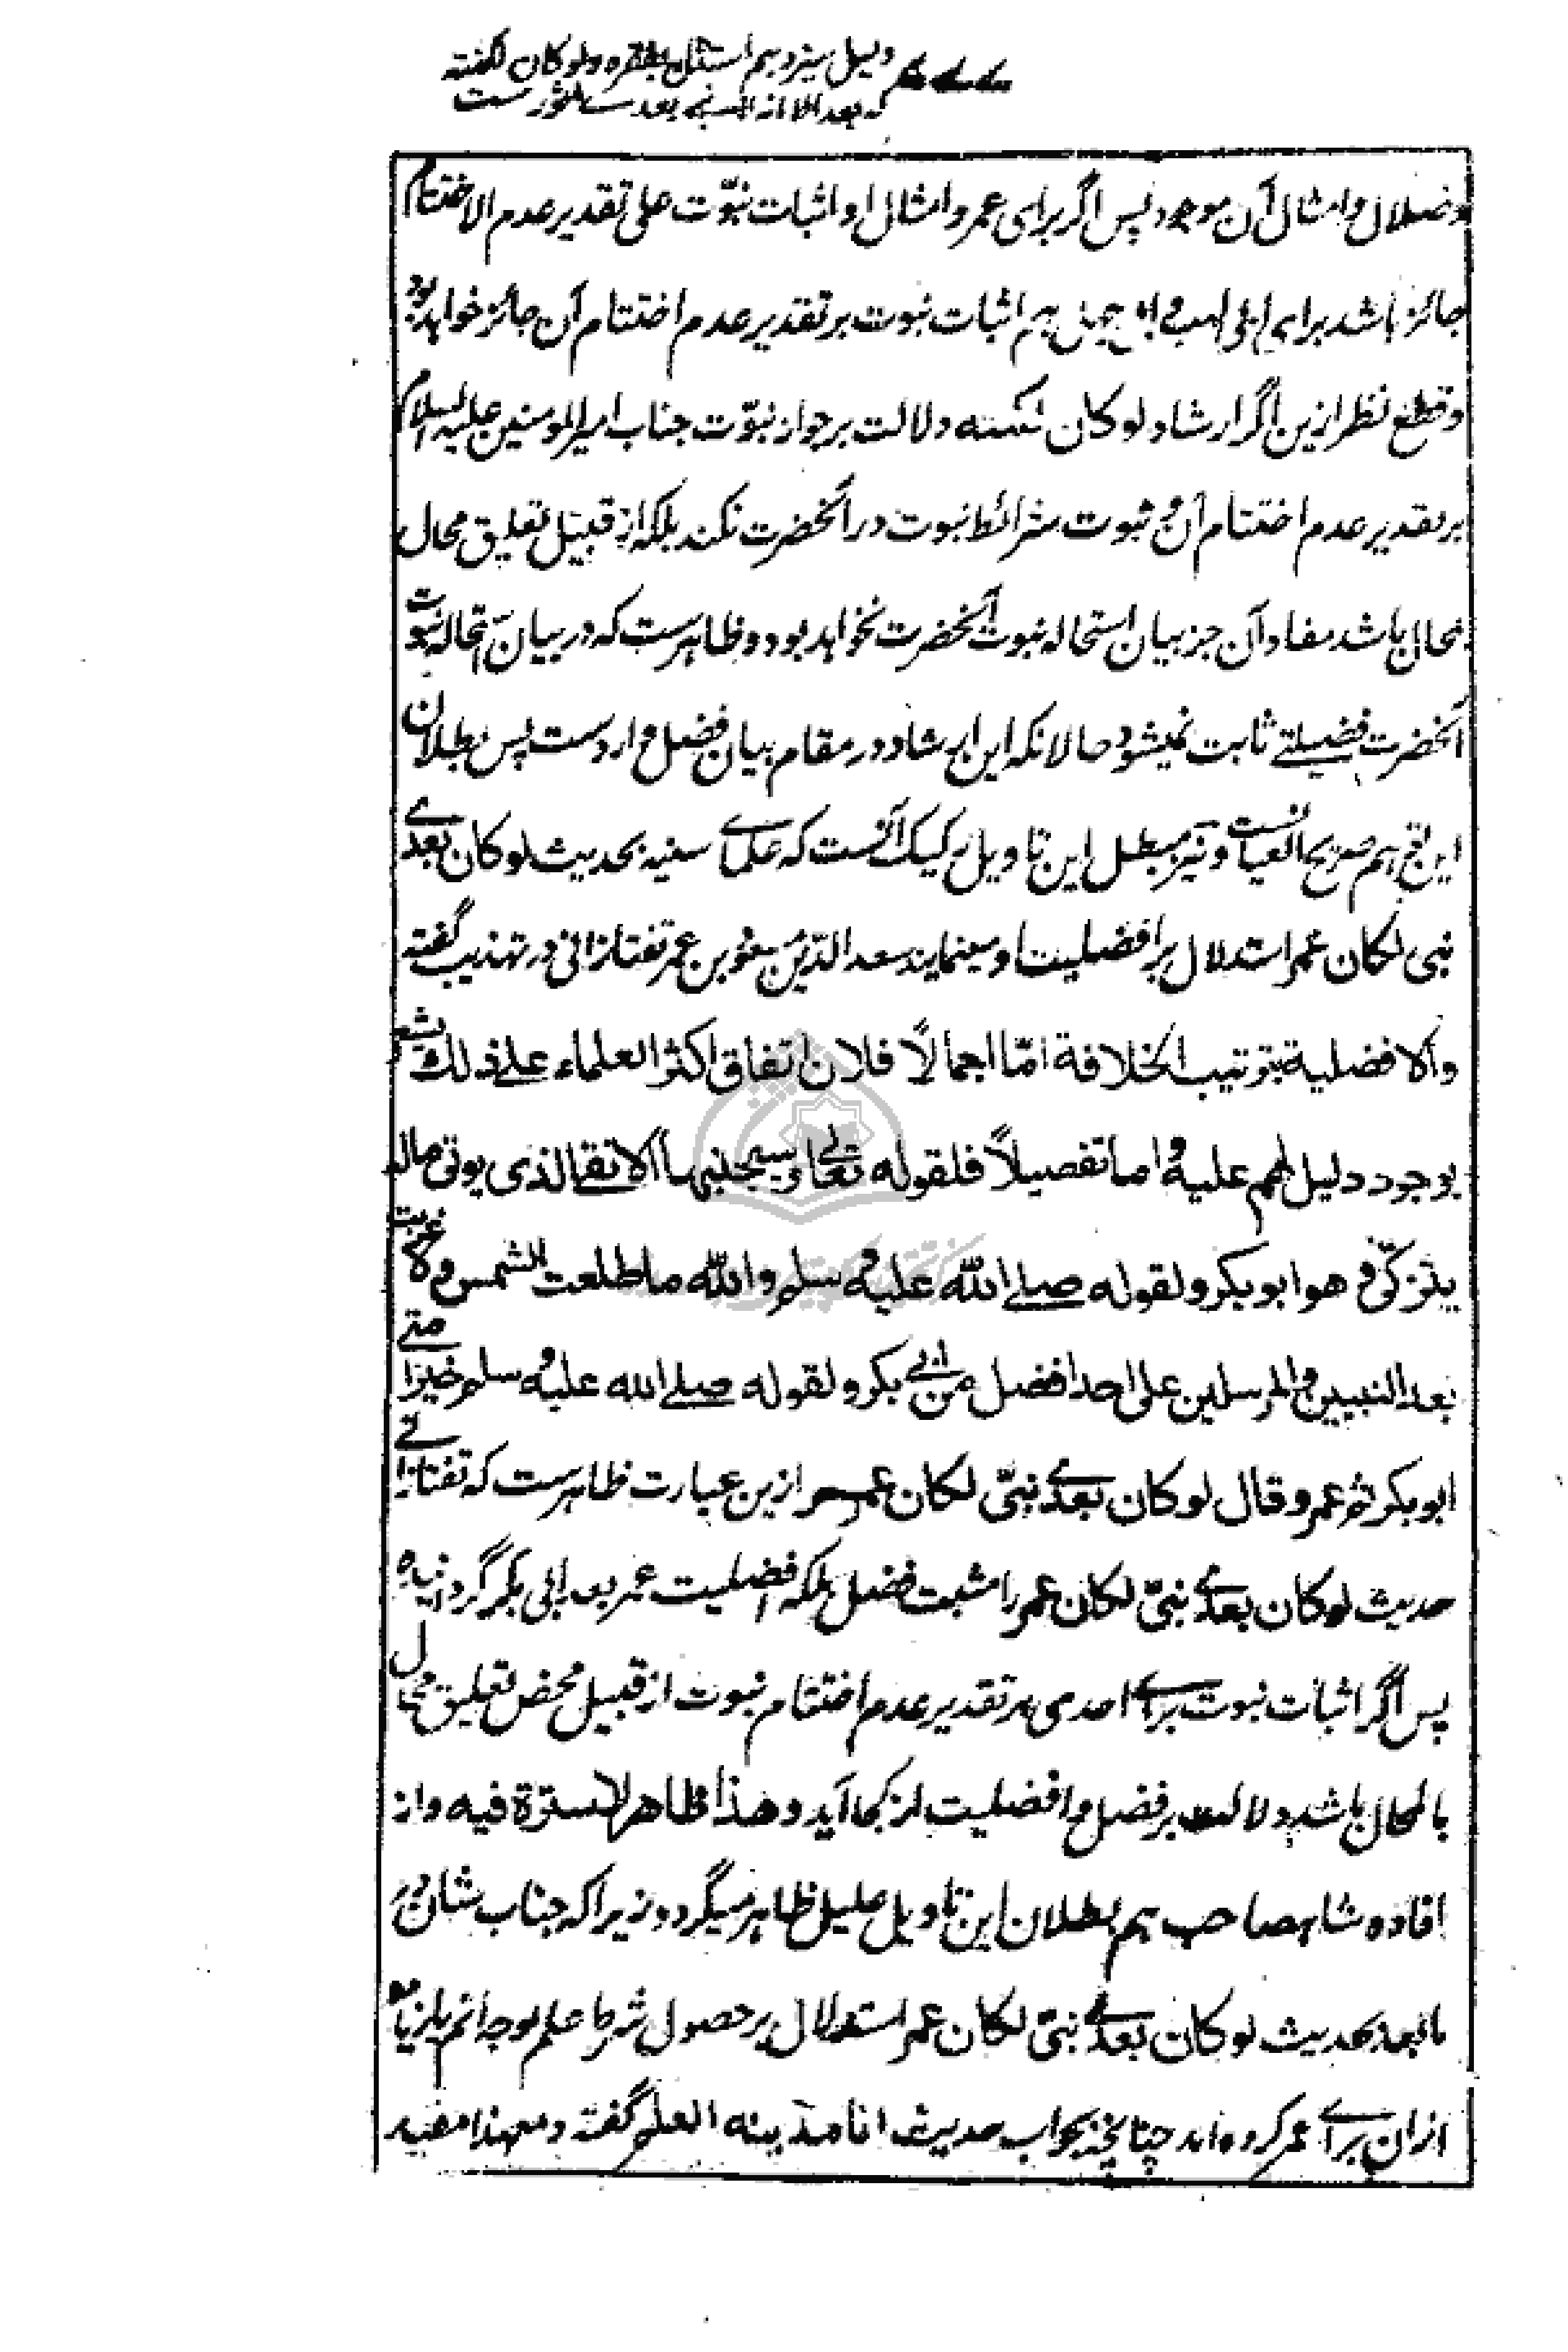 دلیل سیزدهم استدلال بفقره ولو کان لکنته
که بعد الا انه
وضلال و امثال آن موجود پس اگر برای عمر و امثال او اثبات نبوّت علی تقدیر عدم الاختتام
جائز باشد برای ابی لهب و ابی جهل هم اثبات نبوت بر تقدیر عدم اختتام آن جائز خواهد بود
و قطع نظر ازین اگر ارشاد لو کان لکنته دلالت بر جواز نبوّت جناب امیر المومنین علیه السلام
بر تقدیر عدم اختتام آن و ثبوت شرائط نبوت در آنحضرت نکند بلکه از قبیل تعلیق محال
بمحال باشد مفاد آن جز بیان استحاله نبوت آنحضرت نخواهد بود و ظاهرست که در بیان استحاله نبوت
آنحضرت فضیلتے ثابت نمیشود حالانکه این ارشاد در مقام بیان فضل وارد ست پس بطلان
این هم صریح و نیز مبطل این تاویل رکیک آنست که علمای سنیه بحدیث لو کان بعدے
نبی لکان عمر استدلال بر افضلیت او مینمایند سعد الدین مسعود بن عمر تفتازانی در تهذیب گفته
والافضلیة بترتیب الخلافة امّا اجمالاً فلان اتفاق اکثر العلماء علے ذلك یشعر
بوجود دلیل لهم علیه و اما تفصیلاً فلقوله تعالی وسیجنبها الاتقے الذی یوتی ماله
یتزکّی و هو ابو بکر ولقوله صلے اللّه علیه و سلم واللّه ما طلعت الشمس ولا غربت
بعد النبیین و المرسلین علی احد افضل من ابی بکر ولقوله صلے الله علیه و سلم خیر امتے
ابو بکر ثم عمر وقال لو کان بعدے نبیّ لکان عمر ازین عبارت ظاهرست که تفتازانے
حدیث لو کان بعدے نبیّ لکان عمر را مثبت فضل بلکه افضلیت عمر بعد ابی بکر گردانیده
پس اگر اثبات نبوت براے احدی بر تقدیر عدم اختتام نبوت از قبیل محض تعلیق محال
بالمحال باشد دلالت بر فضل و افضلیت از کجا آید و هذا ظاهر لا سترة فیه و از
افاده شاهصاحب هم بطلان این تاویل علیل ظاهر میگردد زیرا که جناب شان در
ما بعد بحدیث لو کان بعدے نبیّ لکان عمر استدلال بر حصول شرط علم بوجه اتم بلزیاده
ازان براے عمر کرده اند چنانچه بجواب حدیث انا مدینه العلم گفته و معهذا مفید